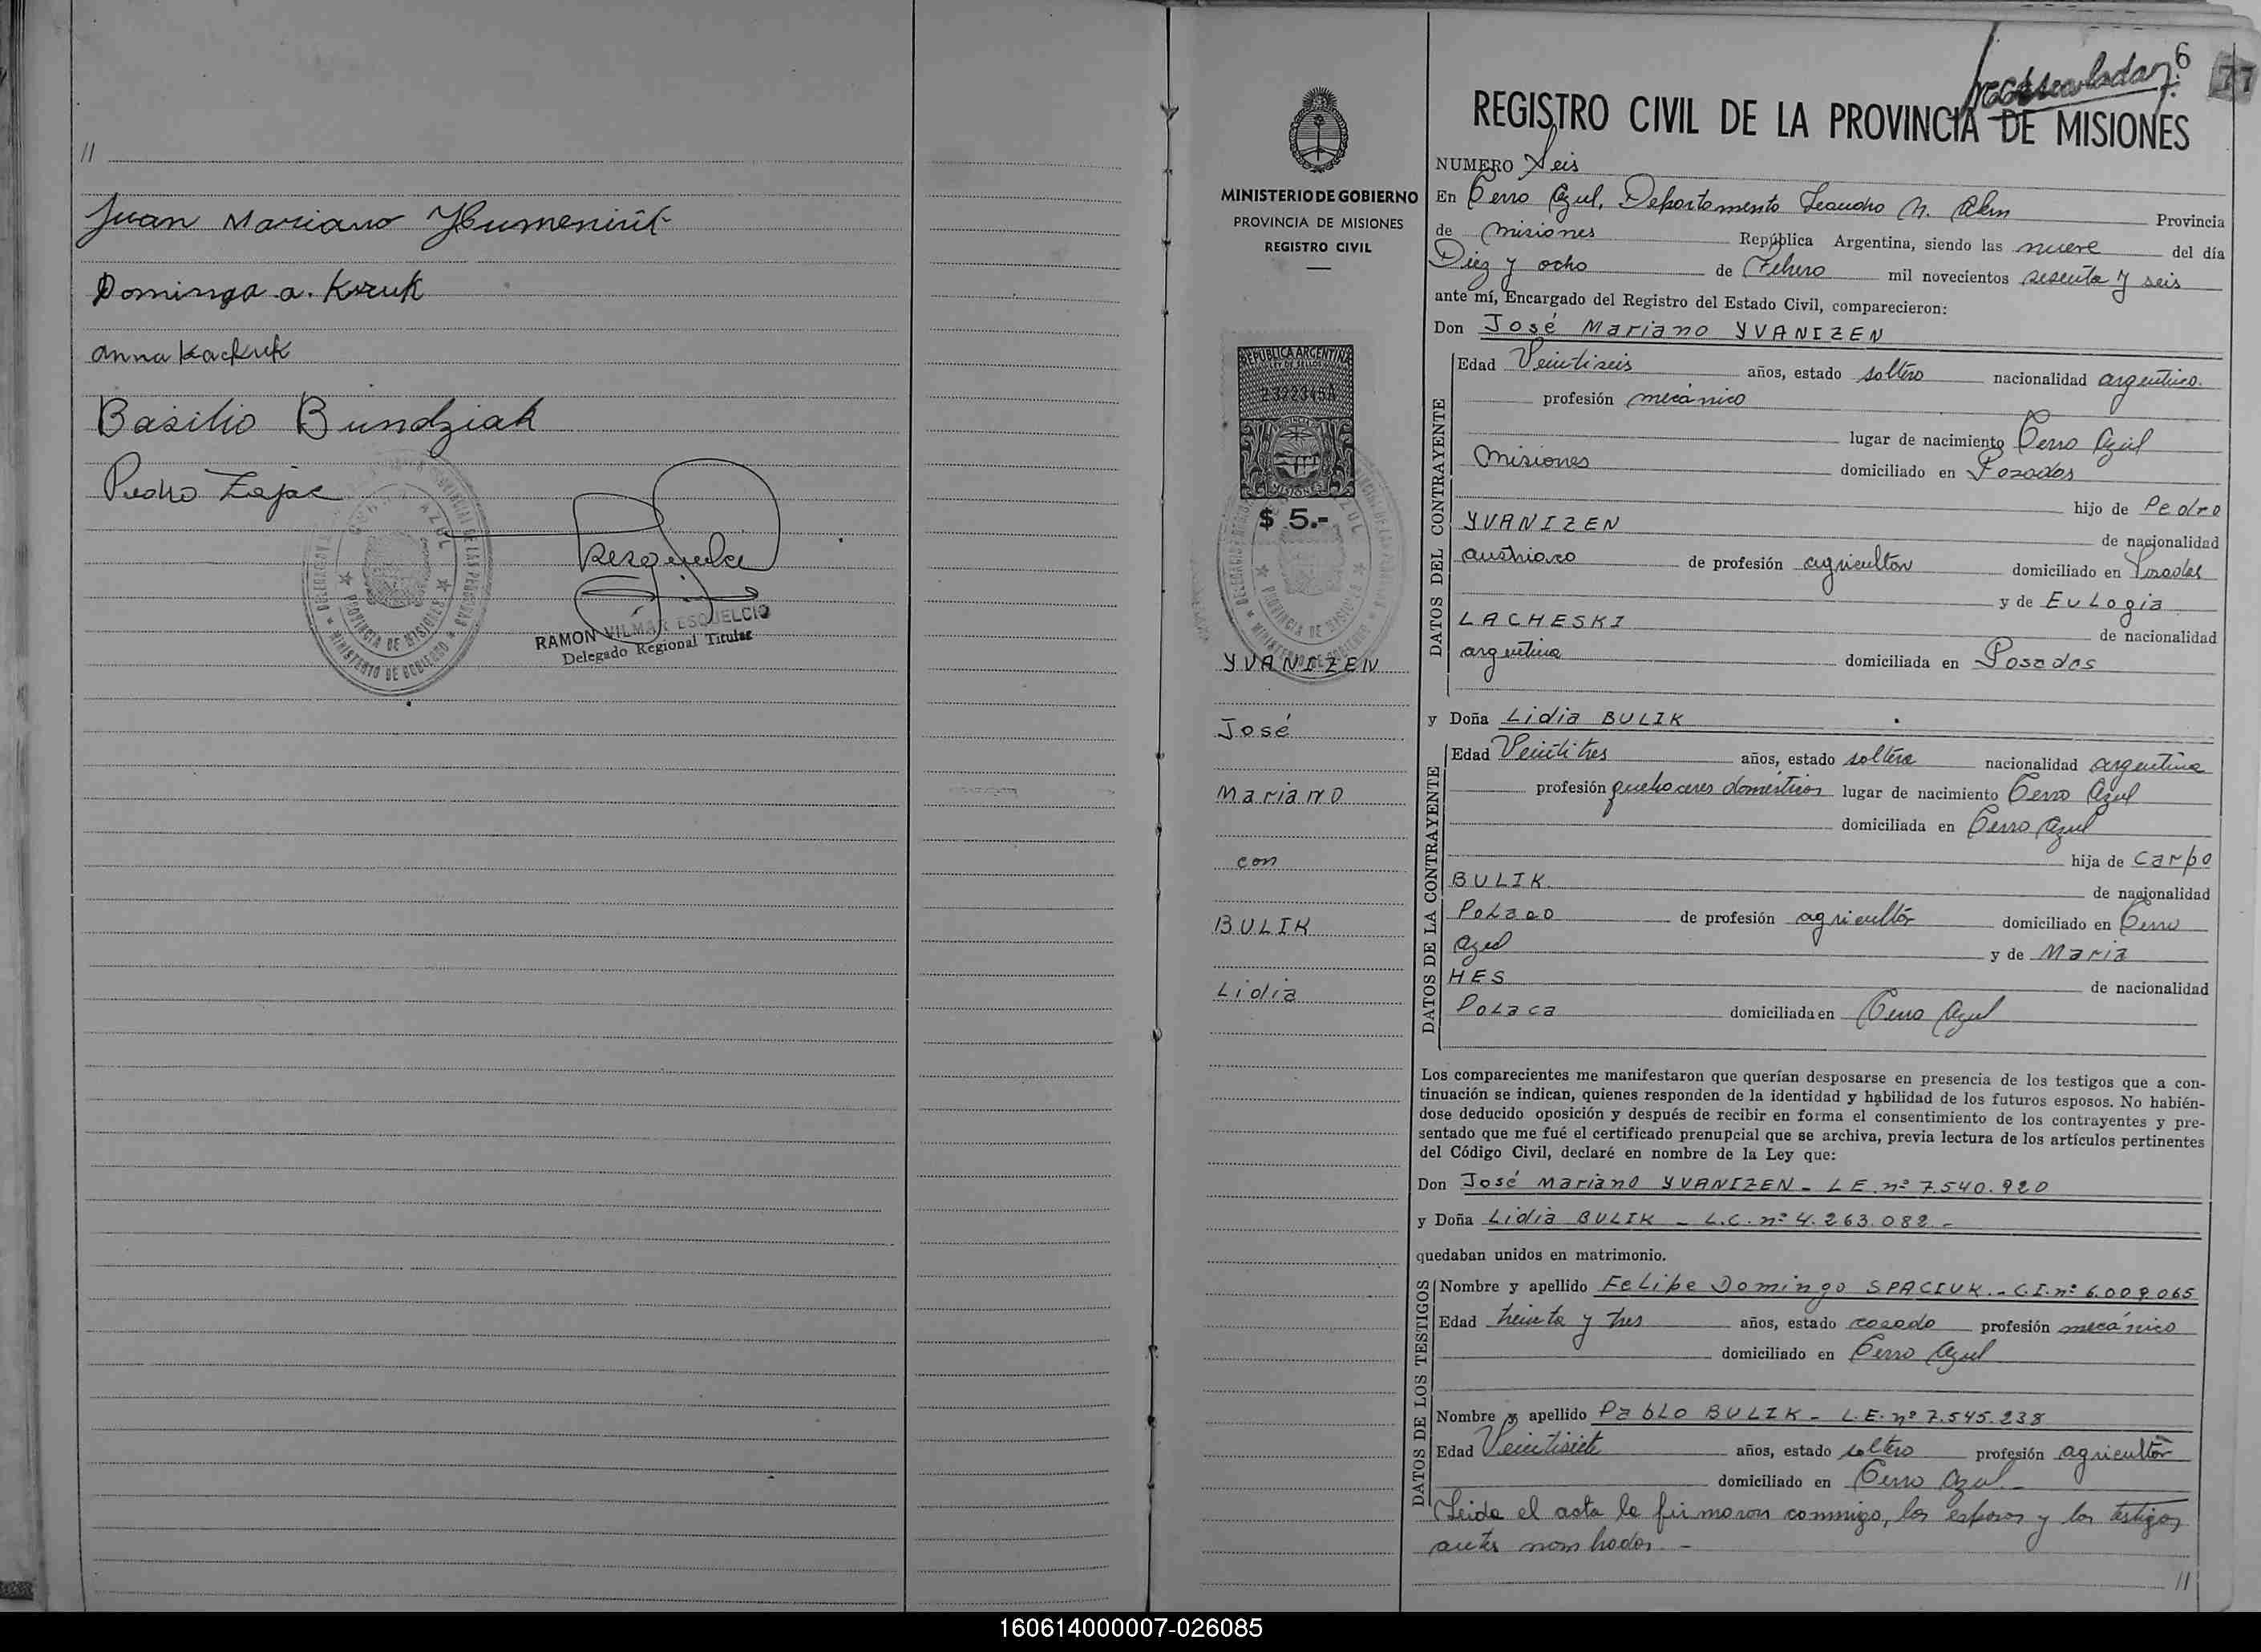 //
Juan Mariano Humeniuk
Dominga a. Kozuk
Anna Kachuk
Basilio Bundziak
Pedro Zajac
RAMON VILMAR ESQUELCIO
Delegado Regional Titular
MINISTERIO DE GOBIERNO
PROVINCIA DE MISIONES
REGISTRO CIVIL
REPUBLICA ARGENTINA
LEY DE SELLOS
MISIONES
$ 5.-
YVANIZEN
José
Mariano
con
BULIK
Lidia
6
77
REGISTRO CIVIL DE LA PROVINCIA DE MISIONES
NUMERO Seis
En Cerro Azul, Departamento Leandro N. Alem Provincia
de Misiones República Argentina, siendo las nueve del día
Diez y ocho de Febrero mil novecientos sesenta y seis
ante mí, Encargado del Registro del Estado Civil, comparecieron:
Don José Mariano YVANIZEN
DATOS DEL CONTRAYENTE
Edad Veintiseis años, estado soltero nacionalidad argentino.
profesión mecánico
lugar de nacimiento Cerro Azul
Misiones domiciliado en Posadas
hijo de Pedro
YVANIZEN de nacionalidad
austriaco de profesión agricultor domiciliado en Posadas
y de Eulogia
LACHESKI de nacionalidad
argentina domiciliada en Posadas
y Doña Lidia BULIK
DATOS DE LA CONTRAYENTE
Edad Veintitres años, estado soltera nacionalidad argentina
profesión quehaceres domésticos lugar de nacimiento Cerro Azul
domiciliada en Cerro Azul
hija de Carpo
BULIK. de nacionalidad
Polaco de profesión agricultor domiciliado en Cerro
Azul y de Maria
HES de nacionalidad
Polaca domiciliada en Cerro Azul
Los comparecientes me manifestaron que querían desposarse en presencia de los testigos que a con-
tinuación se indican, quienes responden de la identidad y habilidad de los futuros esposos. No habién-
dose deducido oposición y después de recibir en forma el consentimiento de los contrayentes y pre-
sentado que me fué el certificado prenupcial que se archiva, previa lectura de los artículos pertinentes
del Código Civil, declaré en nombre de la Ley que:
Don José Mariano YVANIZEN - L E. nº 7.540.920
y Doña Lidia BULIK - L.C. nº 4.263.082.-
quedaban unidos en matrimonio.
DATOS DE LOS TESTIGOS
Nombre y apellido Felipe Domingo SPACIUK.- C.I. nº 6.009.065
Edad treinta y tres años, estado casado profesión mecánico
domiciliado en Cerro Azul
Nombre y apellido Pablo BULIK - L.E. nº 7.545.238
Edad Veintisiete años, estado soltero profesión agricultor
domiciliado en Cerro Azul.-
Leida el acta la firmaron conmigo, los esposos y los testigos
antes nombrados.-
//
160614000007-026085